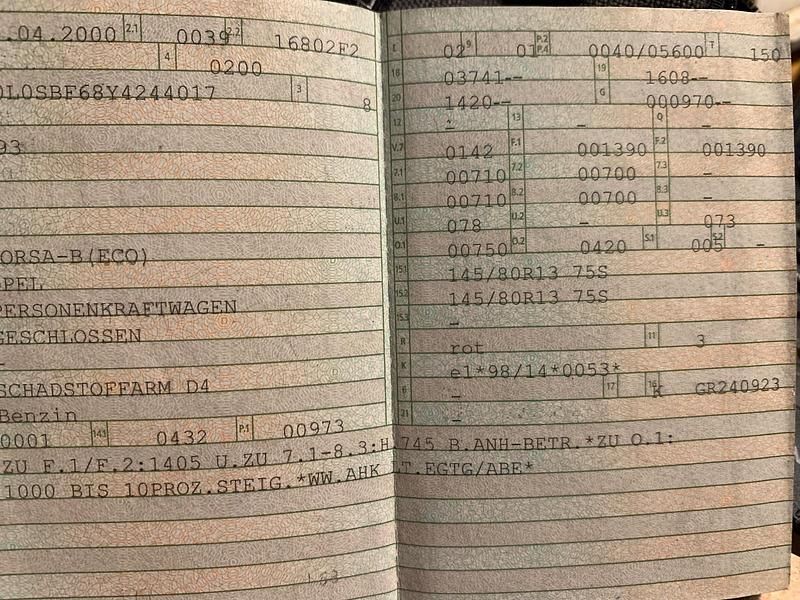 .04.2000 2.1 0039 2.2 16802F2
4 0200
0L0SBF68Y4244017 3 8
93
ORSA-B(ECO)
PEL
PERSONENKRAFTWAGEN
GESCHLOSSEN
–
SCHADSTOFFARM D4
Benzin
0001 14.1 0432 P.1 00973
L 02 9 01 P.2 P.4 0040/05600 T 150
18 03741-- 19 1608--
20 1420-- G 000970--
12 – 13 – Q –
V.7 0142 F.1 001390 F.2 001390
7.1 00710 7.2 00700 7.3 –
8.1 00710 8.2 00700 8.3 –
U.1 078 U.2 – U.3 073
O.1 00750 O.2 0420 S.1 005 S.2 –
15.1 145/80R13 75S
15.2 145/80R13 75S
15.3 –
R rot 11 3
K e1*98/14*0053*
6 – 17 K 16 GR240923
21 –
ZU F.1/F.2:1405 U.ZU 7.1-8.3:H.745 B.ANH-BETR.*ZU O.1:
1000 BIS 10PROZ.STEIG.*WW.AHK LT.EGTG/ABE*